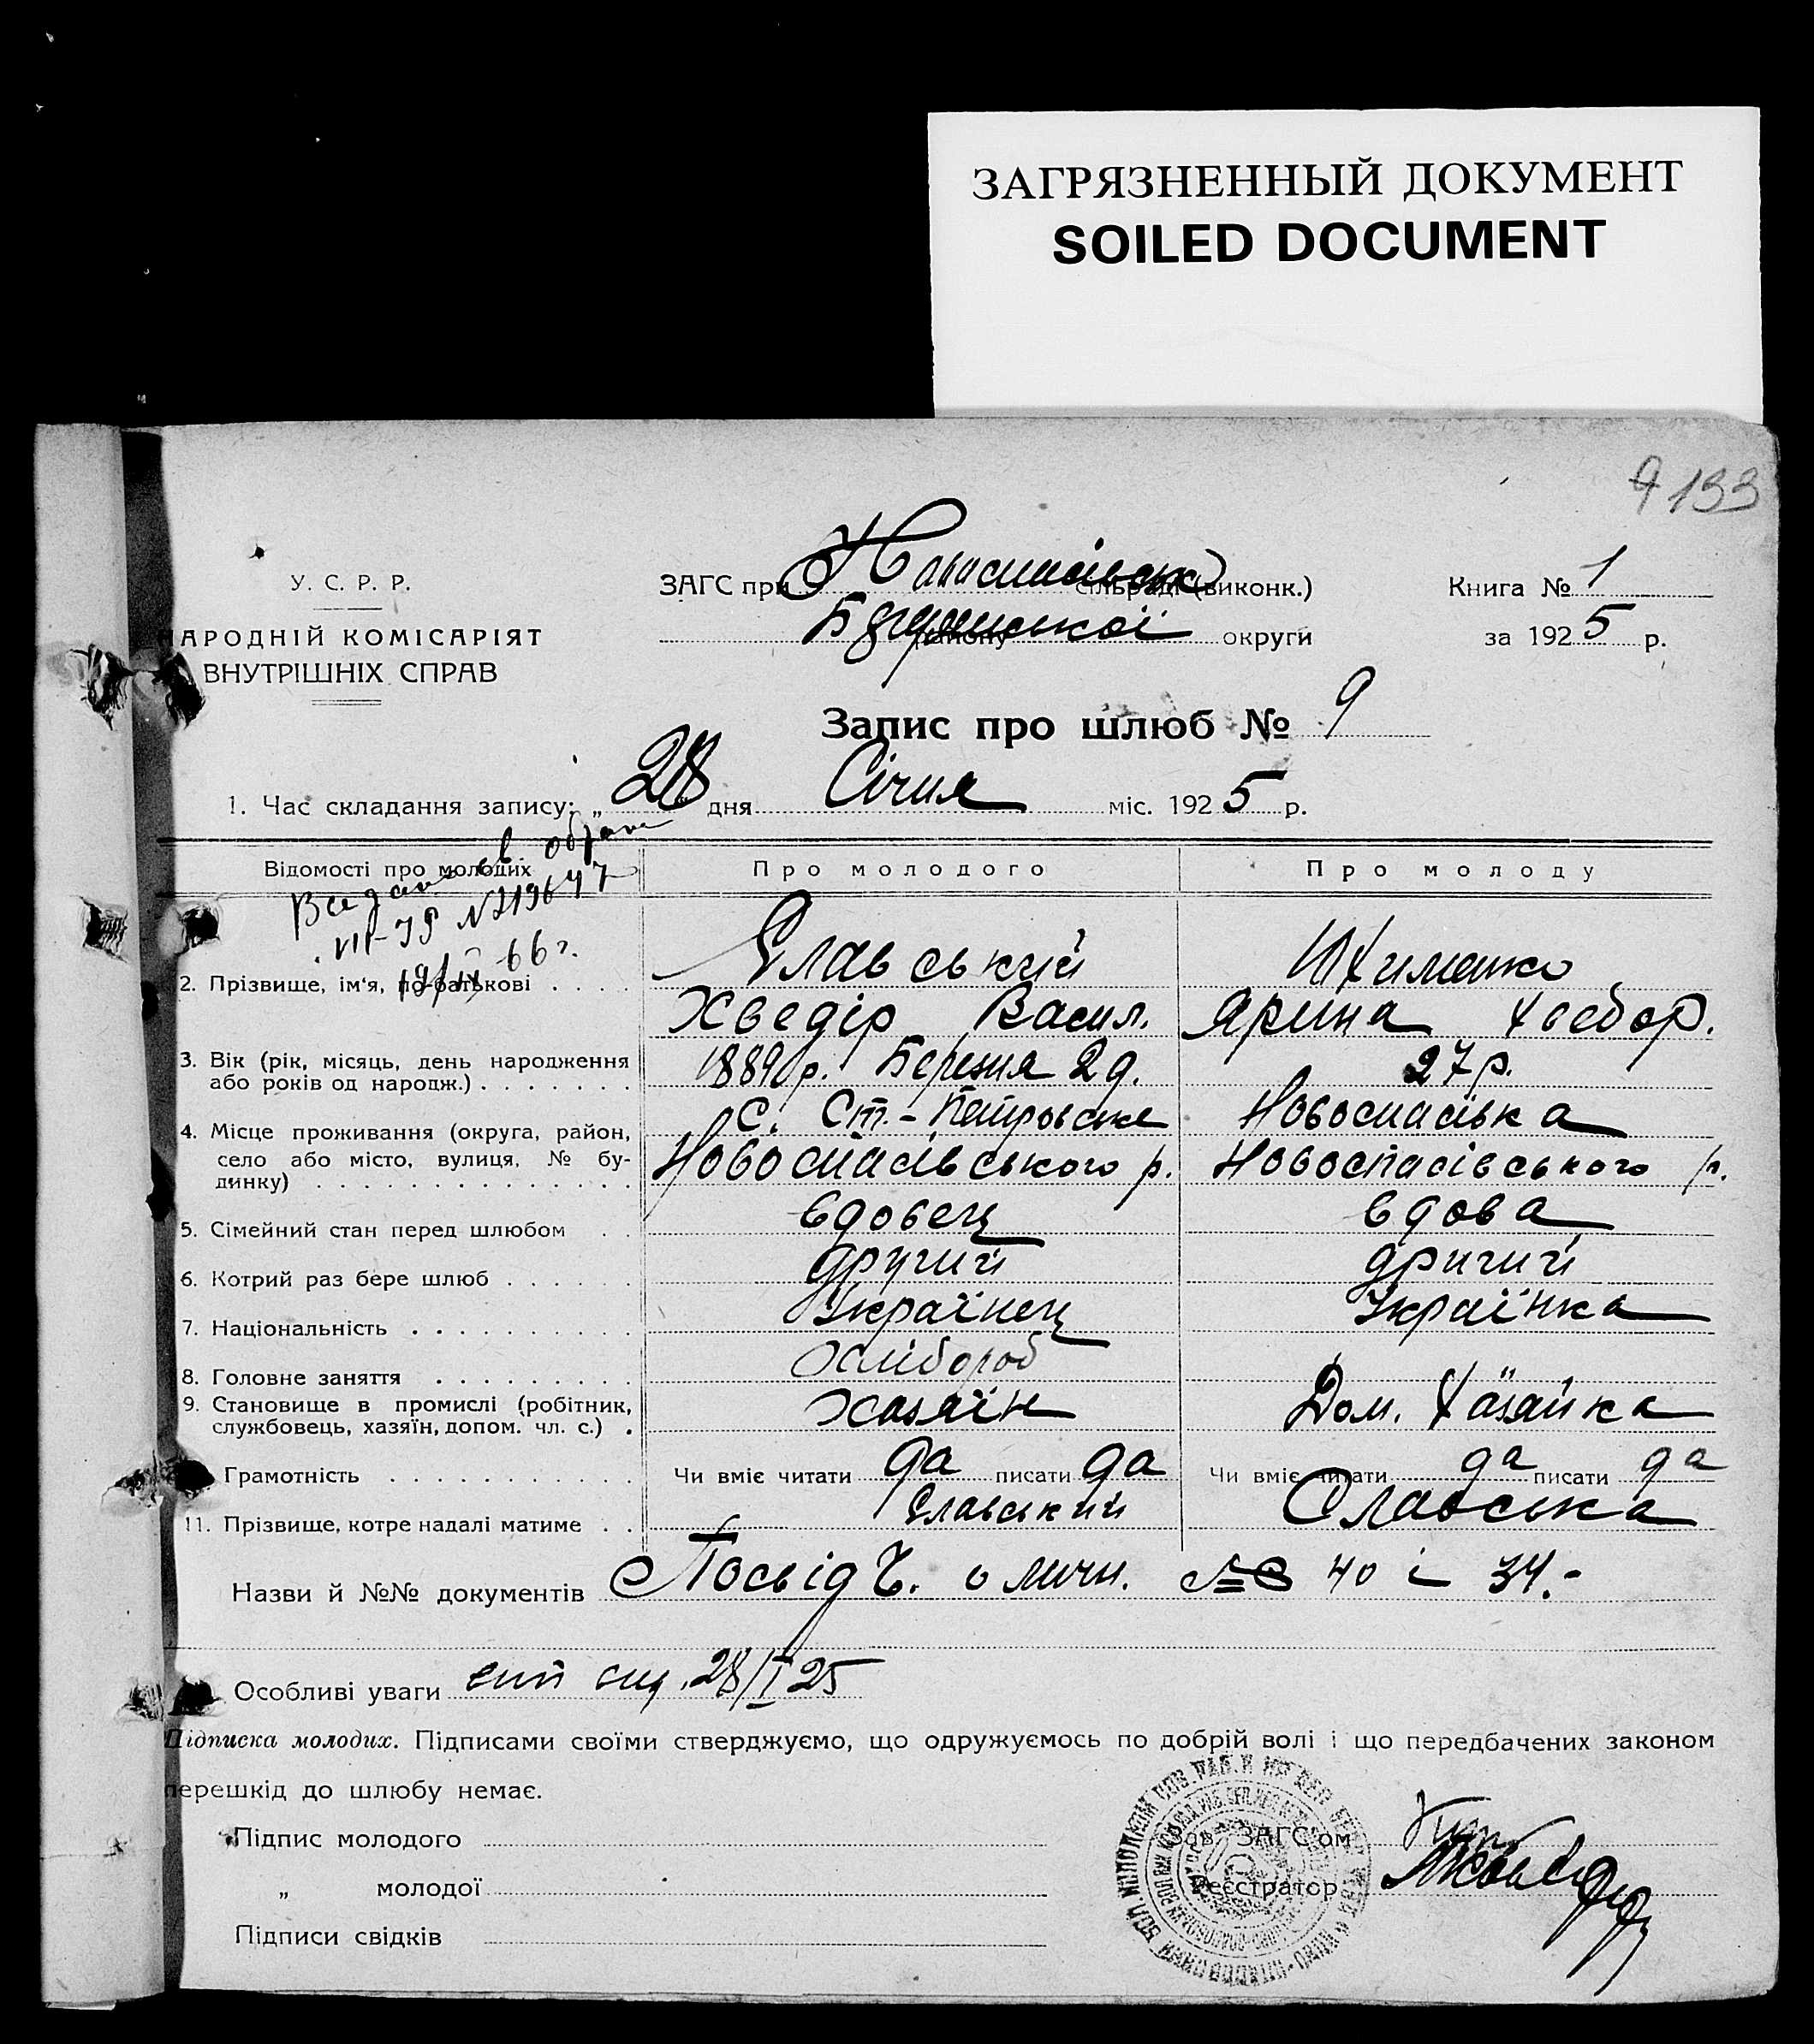 ЗАГРЯЗНЕННЫЙ ДОКУМЕНТ
SOILED DOCUMENT
9 133
У. С. Р. Р.
НАРОДНІЙ КОМІСАРІЯТ
ВНУТРІШНІХ СПРАВ
ЗАГС при сільраді (виконк.)
району округи
Книга № 1
за 1925 р.
Запис про шлюб № 9
1. Час складання запису: „28 дня Січня міс. 1925 р.
Відомості про молодих
Про молодого
Про молоду
№ 219647
66 г.
2. Прізвище, ім'я, по-батькові . . . .
Єлавський
Хведір Васил.
Ярина Хведор.
3. Вік (рік, місяць, день народження
або років од народж.) . . . . . . .
1889 р. Березня 2 д.
27 р.
4. Місце проживання (округа, район,
село або місто, вулиця, № бу-
динку) . . . . . . . . . . . . . .
С. Ст.-Петровське
Новоспасівського р.
Новоспасівка
Новоспасівського р.
5. Сімейний стан перед шлюбом . .
вдовец
вдова
6. Котрий раз бере шлюб . . . . . .
другий
другий
7. Національність . . . . . . . . . .
Українец
Українка
8. Головне заняття . . . . . . . . .
Хлібороб
9. Становище в промислі (робітник,
службовець, хазяїн, допом. чл. с.) .
хазяїн
Дом. Хазяйка
Грамотність . . . . . . . . . . .
Чи вміє читати да писати да
Чи вміє читати да писати да
11. Прізвище, котре надалі матиме . .
Єлавський
Єлавська
Назви й №№ документів Посвідч. о личн. № 40 і 34.-
Особливі уваги 28/I 25
Підписка молодих. Підписами своїми стверджуємо, що одружуємось по добрій волі і що передбачених законом
перешкід до шлюбу немає.
Підпис молодого
„ молодої
Підписи свідків
Зав. ЗАГС'ом
Реєстратор